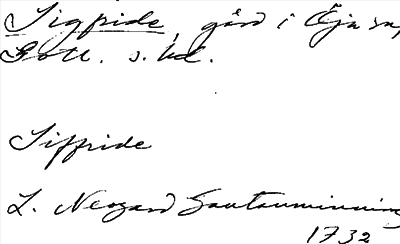 Sigfride, gård i Öja sn,
Gotl. s. hd.
Siffride
L. Neogard Gautauminning
1732